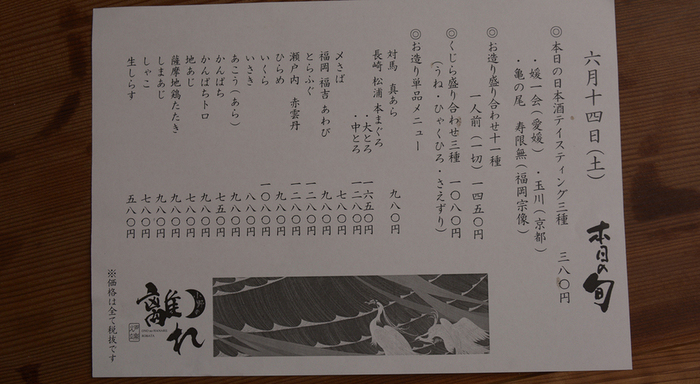 六月十四日(土)
本日の旬
◎本日の日本酒テイスティング三種 三八〇円
・媛一会(愛媛) ・玉川(京都)
・亀の尾 寿限無(福岡宗像)
◎お造り盛り合わせ十一種
一人前(一切) 一四五〇円
◎くじら盛り合わせ三種 一〇八〇円
(うね・ひゃくひろ・さえずり)
◎お造り単品メニュー
対馬 真あら 九八〇円
長崎 松浦 本まぐろ
・大とろ 一六五〇円
・中とろ 一二八〇円
〆さば 七八〇円
福岡 福吉 あわび 九八〇円
とらふぐ 一二八〇円
瀬戸内 赤雲丹 一二八〇円
ひらめ 九八〇円
いくら 一〇八〇円
いさき 八八〇円
あこう(あら) 九八〇円
かんぱち 七五〇円
かんぱちトロ 九八〇円
地あじ 七八〇円
薩摩地鶏たたき 九八〇円
しまあじ 九八〇円
しゃこ 七八〇円
生しらす 五八〇円
離れ
※価格は全て税抜です